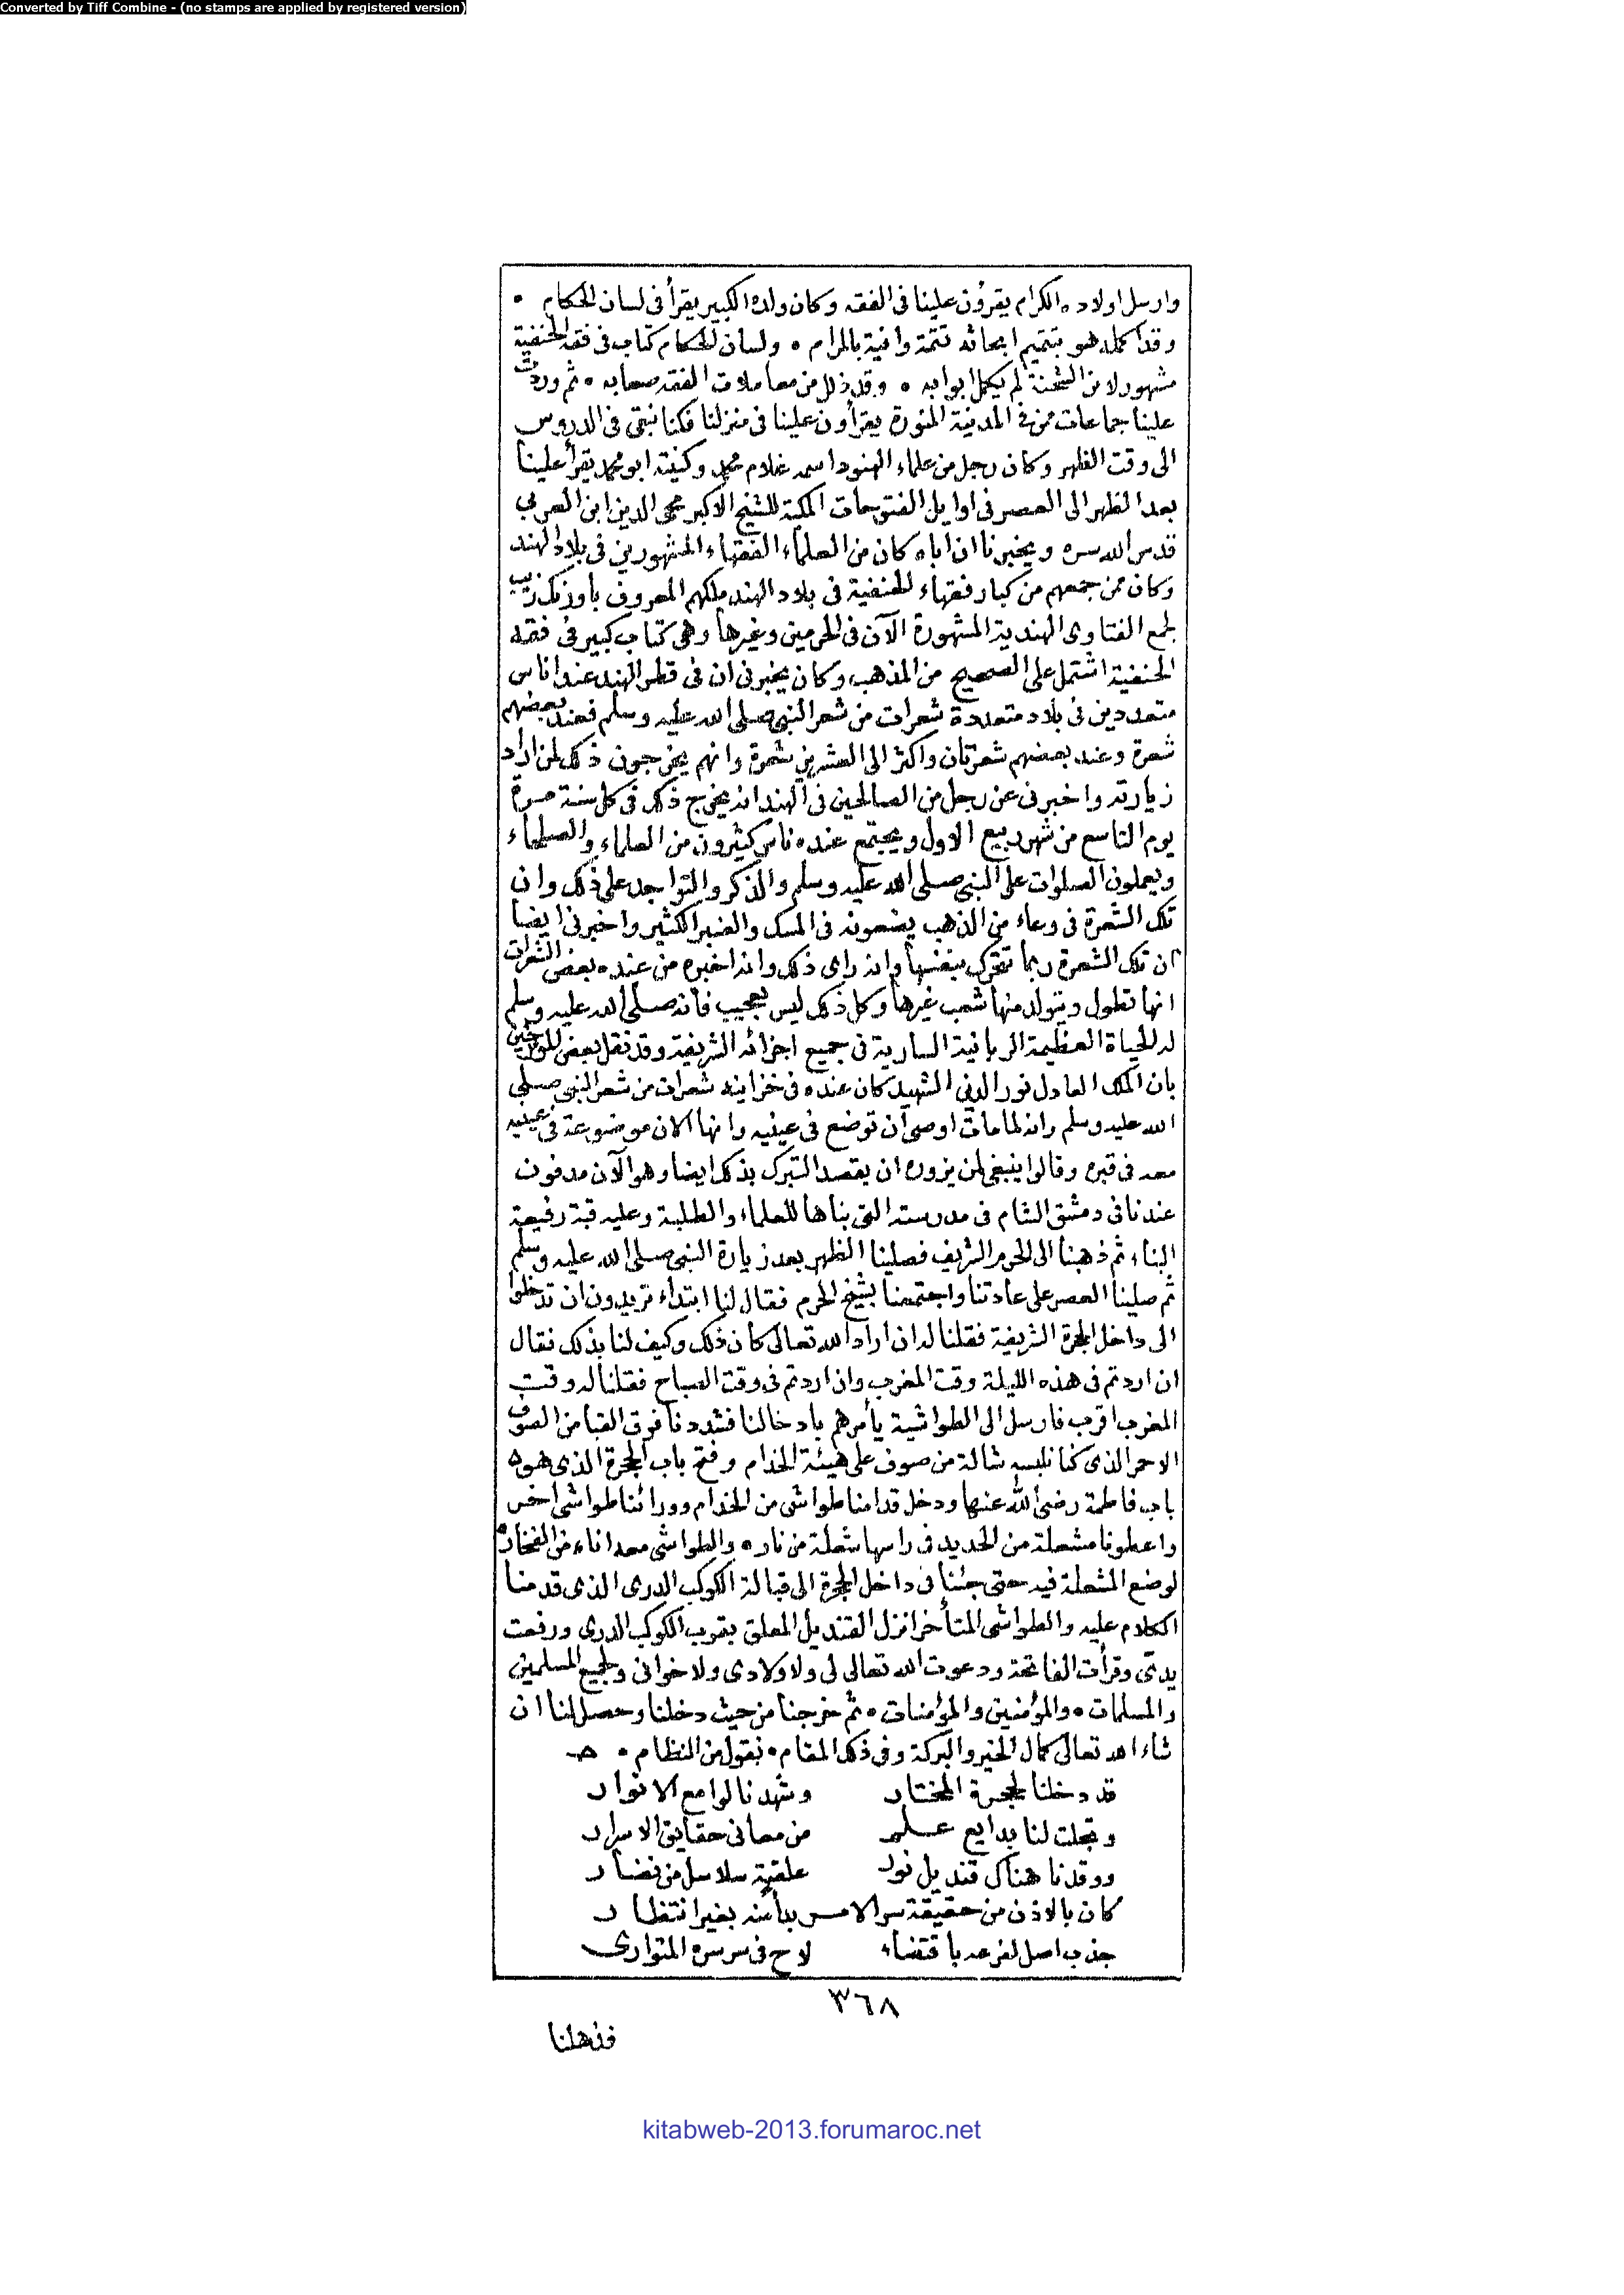 Converted by Tiff Combine - (no stamps are applied by registered version)
وارسل اولاده الكرام يقرؤن علينا فى الفقه وكان ولده الكبير يقرأ فى لسان الحكام •
وقد اكمله هو بتتميم ابحاثه تتمة وافية بالمرام • ولسان الحكام كتاب فى فقه الحنفية
مشهور لابن الشحنة لم يكمل ابوابه • وقد ذلل من معاملات الفقه صعابه • ثم وردت
علينا جماعات ممن فى المدينة المنورة يقرأون علينا فى منزلنا فكنا نبقى فى الدروس
الى وقت الظهر وكان رجل من علماء الهنود اسمه غلام محمد وكنيته ابو محمد يقرأ علينا
بعد الظهر الى العصر فى اوايل الفتوحات المكية للشيخ الاكبر محيى الدين ابن العربي
قدس الله سره ويخبرنا ان اباه كان من العلماء الفقهاء المشهورين فى بلاد الهند
وكان ممن جمعهم من كبار فقهاء الحنفية فى بلاد الهند ملكهم المعروف باورنك زيب
لجمع الفتاوى الهندية المشهورة الآن فى الحرمين وغيرها وهى كتاب كبير فى فقه
الحنفية اشتمل على الصحيح من المذهب وكان يخبرنى ان فى قطر الهند عند اناس
متعددين فى بلاد متعددة شعرات من شعر النبى صلى الله عليه وسلم فعند بعضهم
شعرة وعند بعضهم شعرتان واكثر الى العشرين شعرة وانهم يخرجون ذلك لمن اراد
زيارته واخبرنى عن رجل من الصالحين فى الهند انه يخرج ذلك فى كل سنة مرة
يوم التاسع من شهر ربيع الاول ويجتمع عنده ناس كثيرون من العلماء والصلحاء
ويعملون الصلوات على النبى صلى الله عليه وسلم والذكر والتواجد على ذلك وان
تلك الشعرة فى وعاء من الذهب يضعونه فى المسك والعنبر الكثير واخبرنى ايضا
ان تلك الشعرة ربما تتحرك بنفسها وانه راى ذلك وانه اخبره من عنده بعض الشعرات
انها تطول ويتولد منها شعب غيرها وكل ذلك ليس بعجيب فانه صلى الله عليه وسلم
له الحياة العظيمة الربانية السارية فى جميع اجزائه الشريفة وقد نقل بعض المورخين
بان الملك العادل نور الدين الشهيد كان عنده فى خزاينه شعرات من شعر النبى صلى
الله عليه وسلم وانه لما مات اوصى ان توضع فى عينيه وانها الان موضوعة فى عينيه
معه فى قبره وقالوا ينبغى لمن يزوره ان يقصد التبرك بذلك ايضا وهو الآن مدفون
عندنا فى دمشق الشام فى مدرسته التى بناها للعلماء والطلبة وعليه قبة رفيعة
البناء ثم ذهبنا الى الحرم الشريف فصلينا الظهر بعد زيارة النبى صلى الله عليه وسلم
ثم صلينا العصر على عادتنا واجتمعنا بشيخ الحرم فقال لنا ابتداء تريدون ان تدخلوا
الى داخل الحجرة الشريفة فقلنا له ان اراد الله تعالى كان ذلك وكيف لنا بذلك فقال
ان اردتم فى هذه الليلة وقت المغرب وان اردتم فى وقت الصباح فقلنا له وقت
المغرب اقرب فارسل الى الطواشية يأمرهم بادخالنا فشددنا فوق القبا من الصوف
الاحمر الذى كنا نلبسه شالة من صوف على هيئة الخدام وفتح باب الحجرة الذى هو
باب فاطمة رضى الله عنها ودخل قدامنا طواشى من الخدام وورائنا طواشى اخر
واعطونا مشعلة من الحديد فى راسها شعلة من نار • والطواشى معه اناء من الفخار •
لوضع المشعلة فيه حتى جئنا فى داخل الحجرة الى قبالة الكوكب الدرى الذى قدمنا
الكلام عليه والطواشى المتأخر انزل القنديل المعلق بقرب الكوكب الدرى ورفعت
يدىّ وقرأت الفاتحة ودعوت الله تعالى لى ولاولادى ولاخوانى ولجميع المسلمين
والمسلمات • والمؤمنين والمؤمنات • ثم خرجنا من حيث دخلنا وحصل لنا ان
شاء الله تعالى كمال الخير والبركة وفى ذلك المقام • نقول من النظام •
قد دخلنا لحجرة المختار وشهدنا لوامع الانوار
وتجلت لنا بدايع علم من معانى حقايق الاسرار
ووقدنا هناك قنديل نور علقته سلاسل من نضار
كان بالاذن من حقيقة سر الامر بدأ منه بغير انتظار
جذب اصل لفرعه باقتضاء لاح فى سر سره المتوارى
٣٦٨
فذهلنا
kitabweb-2013.forumaroc.net